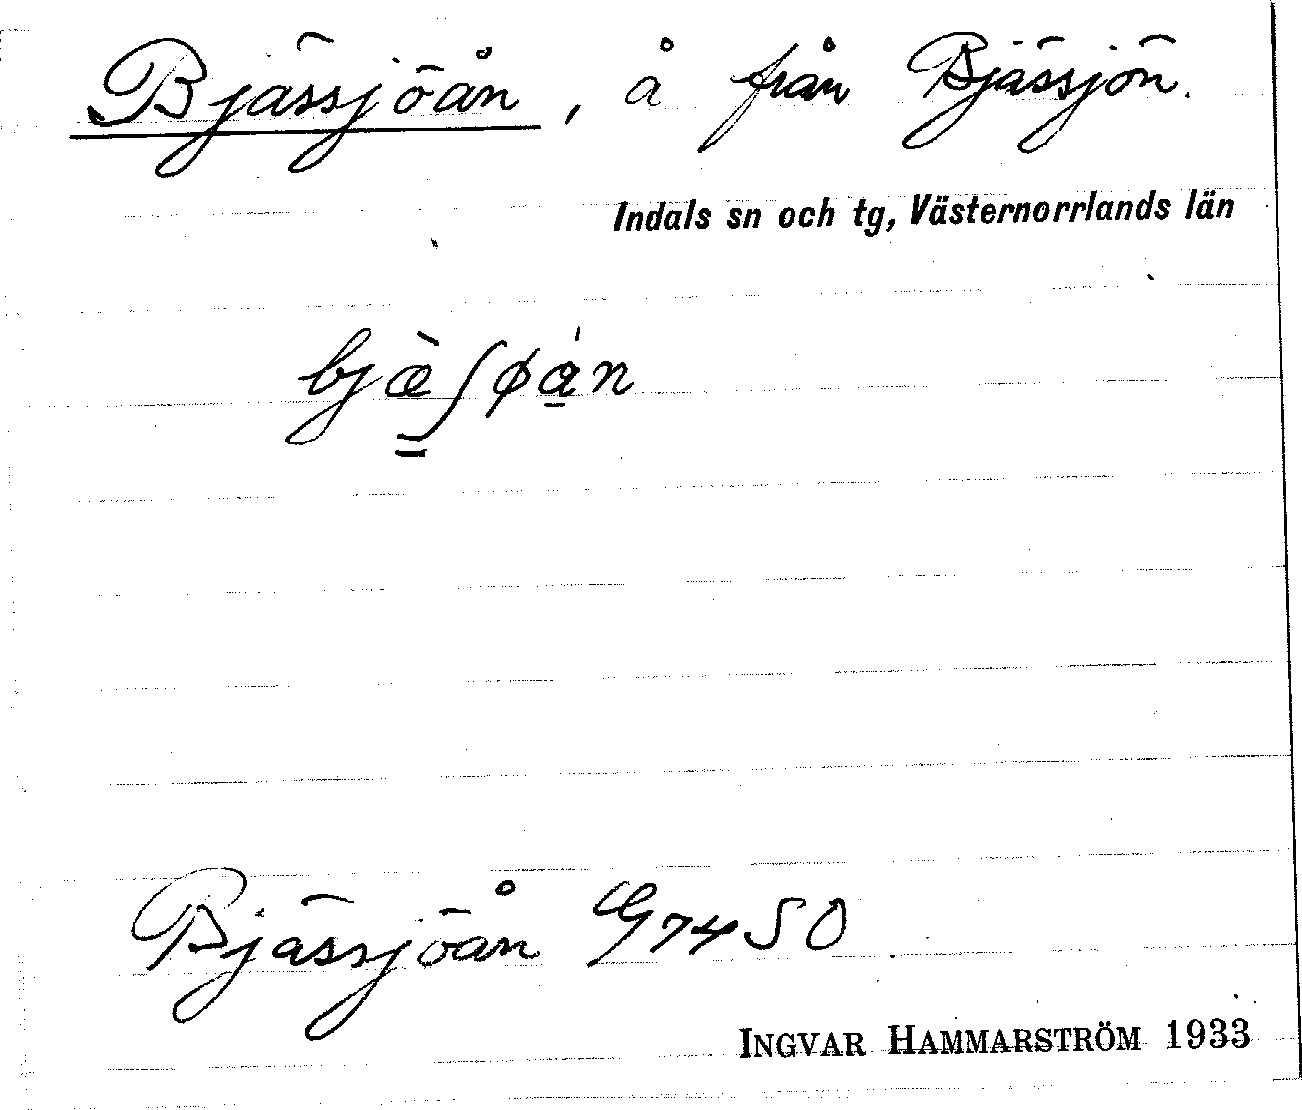 Bjässjöån, å från Bjässjön.
Indals sn och tg, Västernorrlands län
bjæ̀ʃøån
Bjässjöån G74SO
INGVAR HAMMARSTRÖM 1933